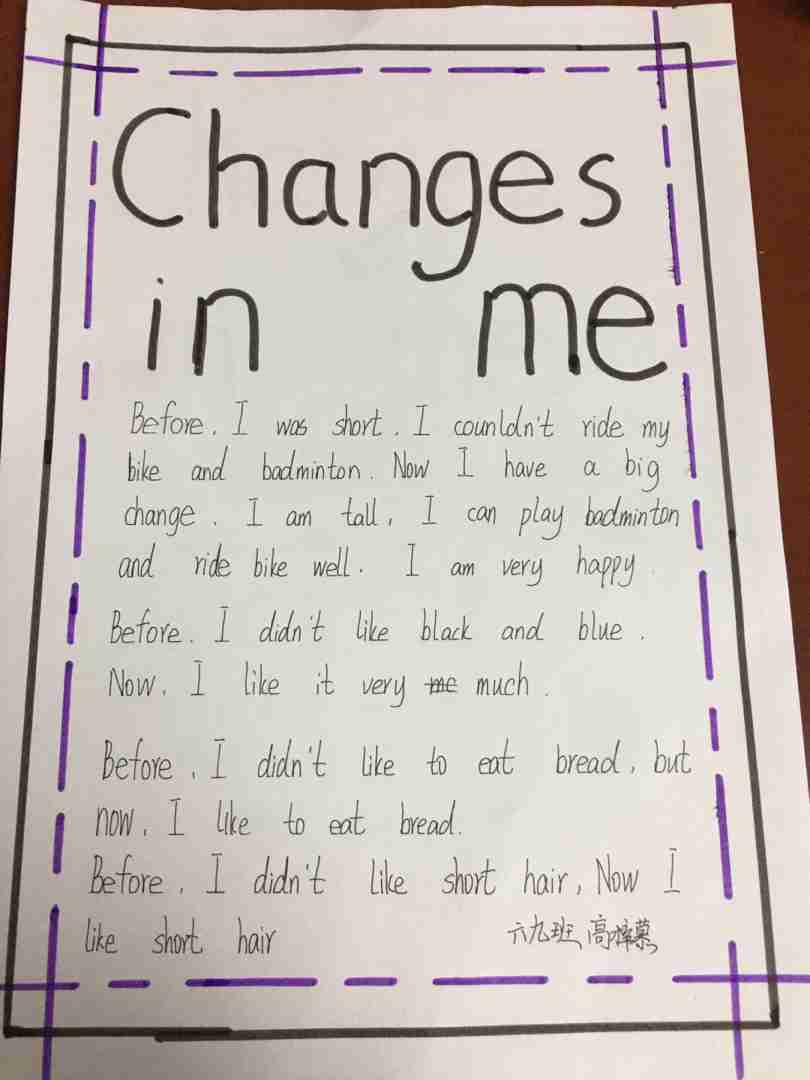 Changes
in me
Before, I was short. I counldn't ride my
bike and badminton. Now I have a big
change. I am tall, I can play badminton
and ride bike well. I am very happy.
Before, I didn't like black and blue.
Now, I like it very me much.
Before, I didn't like to eat bread, but
now, I like to eat bread.
Before, I didn't like short hair, Now I
like short hair
六九班 高梓慕